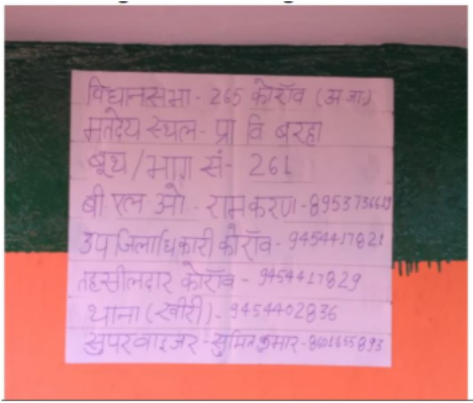 विधानसभा - 265 कोराँव (अ.जा)
मतदेय स्थल - प्रा वि बरहा
बूथ / भाग सं - 261
बी एल ओ - रामकरण -
उप जिलाधिकारी कोराँव - 9454417821
तहसीलदार कोराँव - 9454417829
थाना (खीरी) - 9454402836
सुपरवाइजर - सुमित कुमार -